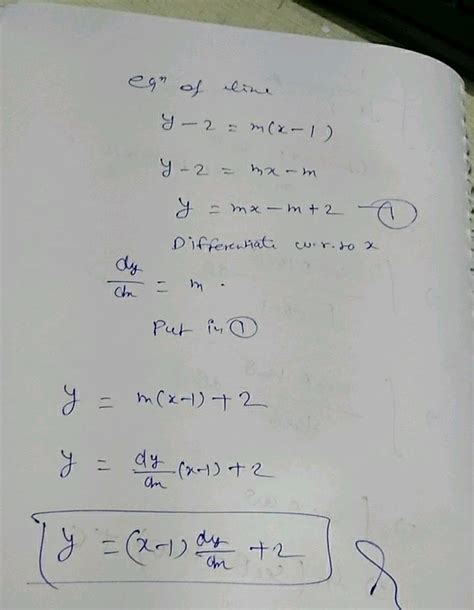 eqn of line
y - 2 = m(x-1)
y - 2 = mx - m
y = mx - m + 2 — ①
Differentiate w.r.to x
dy/dx = m .
Put in ①
y = m(x-1) + 2
y = dy/dx (x-1) + 2
y = (x-1) dy/dx + 2